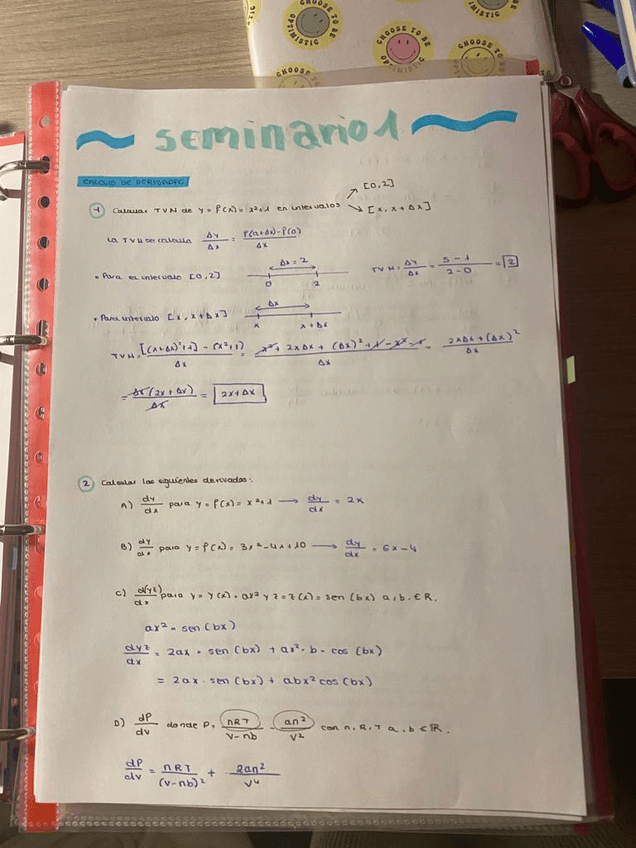 CHOOSE TO BE
OPTIMISTIC
CHOOSE TO BE
OPTIMISTIC
CHOOSE TO BE
CHOOSE
seminario 1
CALCULO DE DERIVADAS
1 Calcular TVM de y = f(x) = x²+1 en intervalos → [0,2]
→ [x, x+Δx]
La TVM se calcula Δy/Δx = f(a+Δx)-f(a)/Δx
• Para el intervalo [0,2] Δx = 2 0 2 TVM = Δy/Δx = 5-1/2-0 = 2
• Para intervalo [x, x+Δx] Δx x x+Δx
TVM = [(x+Δx)²+1] - (x²+1)/Δx = x² + 2xΔx + (Δx)² + 1 - x² - 1/Δx = 2xΔx + (Δx)²/Δx
= Δx(2x+Δx)/Δx = 2x+Δx
2 Calcular las siguientes derivadas:
A) dy/dx para y = f(x) = x²+1 → dy/dx = 2x
B) dy/dx para y = f(x) = 3x²-4x+10 → dy/dx = 6x-4
C) d(yz)/dx para y = y(x) = ax² y z = z(x) = sen(bx) a, b ∈ R.
ax² · sen(bx)
dyz/dx = 2ax · sen(bx) + ax² · b · cos(bx)
= 2ax · sen(bx) + abx² cos(bx)
D) dP/dv donde P = nRT/V-nb - an²/V² con n, R, T a, b ∈ R.
dP/dv = nRT/(v-nb)² + 2an²/v⁴